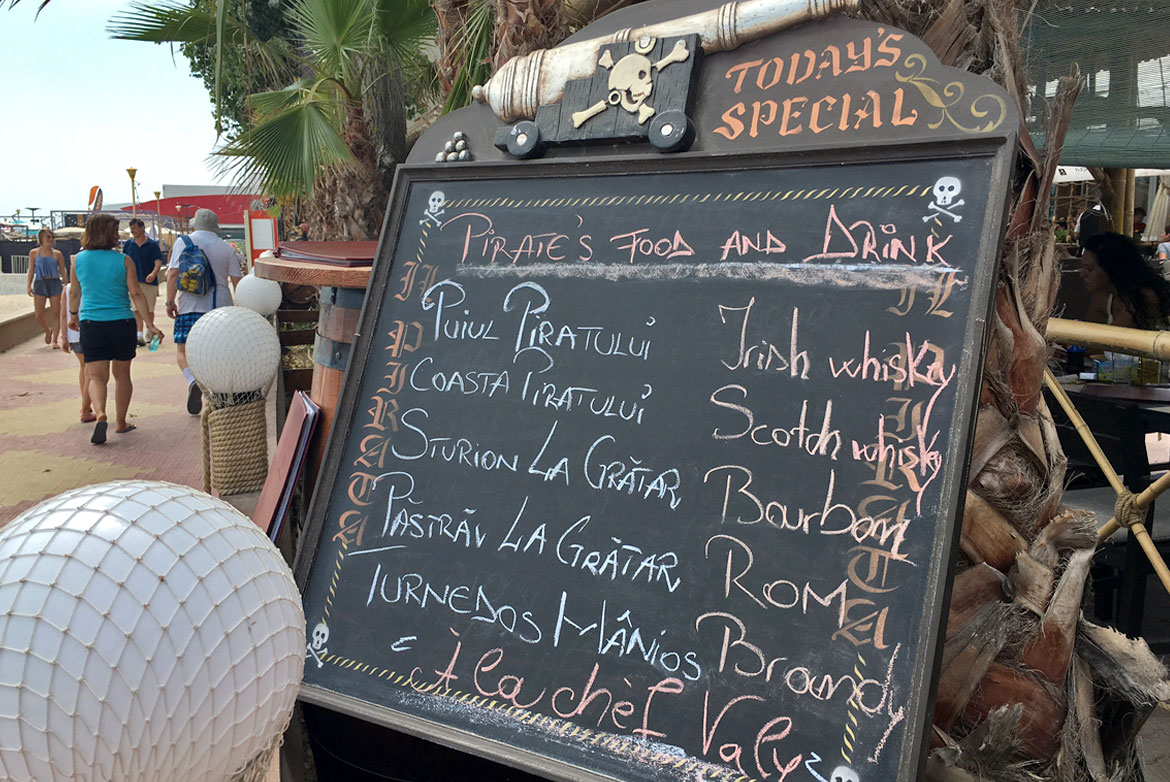 TODAY'S
SPECIAL
PIRATE'S FOOD AND DRINK
PUIUL PIRATULUI
COASTA PIRATULUI
STURION LA GRĂTAR
PĂSTRĂV LA GRĂTAR
TURNEDOS HÂNIOS
À la chèf Valy
Irish whisky
Scotch whisky
Bourbon
ROM
Brandy
IL PIRATA
IL PIRATA